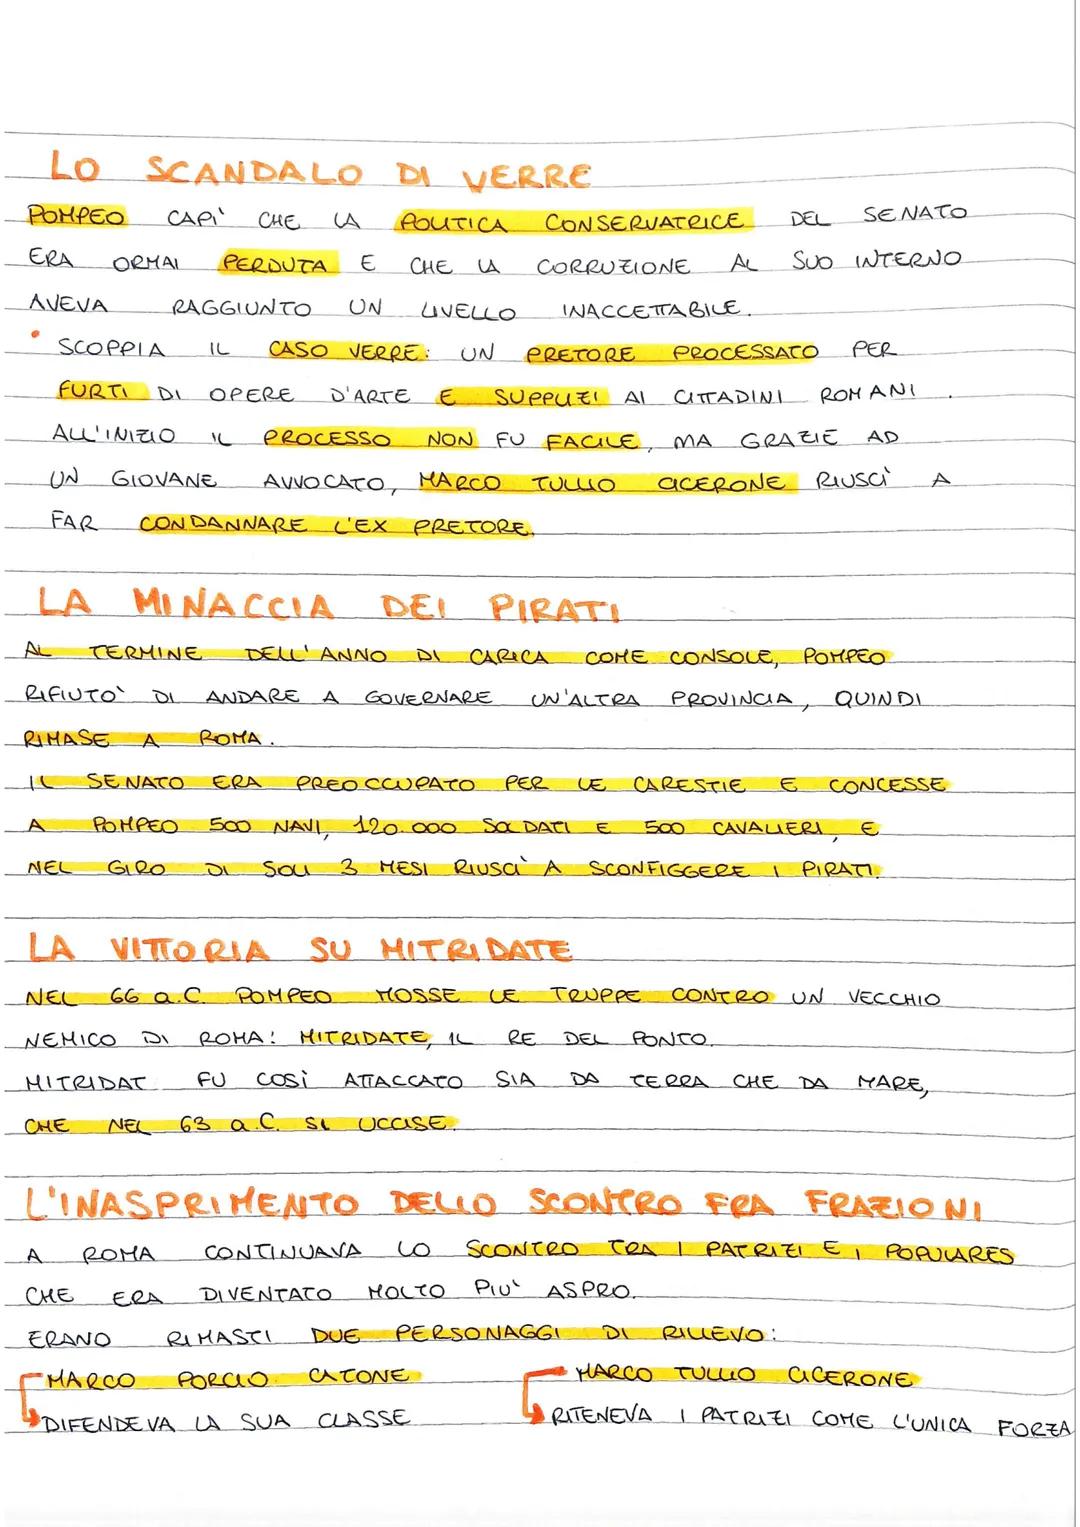 LO SCANDALO DI VERRE
POMPEO CAPI' CHE LA POLITICA CONSERVATRICE DEL SENATO
ERA ORMAI PERDUTA E CHE LA CORRUZIONE AL SUO INTERNO
AVEVA RAGGIUNTO UN LIVELLO INACCETTABILE.
• SCOPPIA IL CASO VERRE: UN PRETORE PROCESSATO PER
FURTI DI OPERE D'ARTE E SUPPLIZI AI CITTADINI ROMANI.
ALL'INIZIO IL PROCESSO NON FU FACILE, MA GRAZIE AD
UN GIOVANE AVVOCATO, MARCO TULLIO CICERONE RIUSCÌ A
FAR CONDANNARE L'EX PRETORE.
LA MINACCIA DEI PIRATI
AL TERMINE DELL'ANNO DI CARICA COME CONSOLE, POMPEO
RIFIUTO' DI ANDARE A GOVERNARE UN'ALTRA PROVINCIA, QUINDI
RIMASE A ROMA.
IL SENATO ERA PREOCCUPATO PER LE CARESTIE E CONCESSE
A POMPEO 500 NAVI, 120.000 SOLDATI E 500 CAVALIERI, E
NEL GIRO DI SOLI 3 MESI RIUSCÌ A SCONFIGGERE I PIRATI.
LA VITTORIA SU MITRIDATE
NEL 66 a.C. POMPEO MOSSE LE TRUPPE CONTRO UN VECCHIO
NEMICO DI ROMA: MITRIDATE, IL RE DEL PONTO.
MITRIDAT FU COSÌ ATTACCATO SIA DA TERRA CHE DA MARE,
CHE NEL 63 a.C. SI UCCISE.
L'INASPRIMENTO DELLO SCONTRO FRA FRAZIONI
A ROMA CONTINUAVA LO SCONTRO TRA I PATRIZI E I POPULARES
CHE ERA DIVENTATO MOLTO PIU' ASPRO.
ERANO RIMASTI DUE PERSONAGGI DI RILIEVO:
MARCO PORCIO CATONE
DIFENDEVA LA SUA CLASSE
MARCO TULLIO CICERONE
RITENEVA I PATRIZI COME L'UNICA FORZA